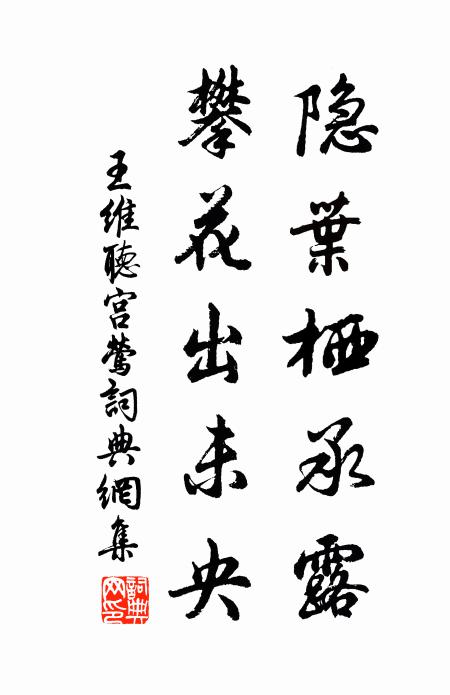 隐葉栖承露
攀花出未央
王維聽宫鶯詞典網集
詞典网印